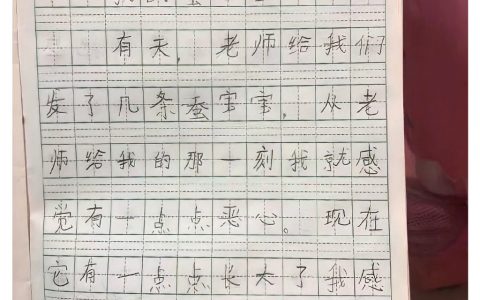 有天，老师给我们
发了几条蚕宝宝，从老
师给我的那一刻我就感
觉有一点点恶心。现在
它有一点点长大了我感